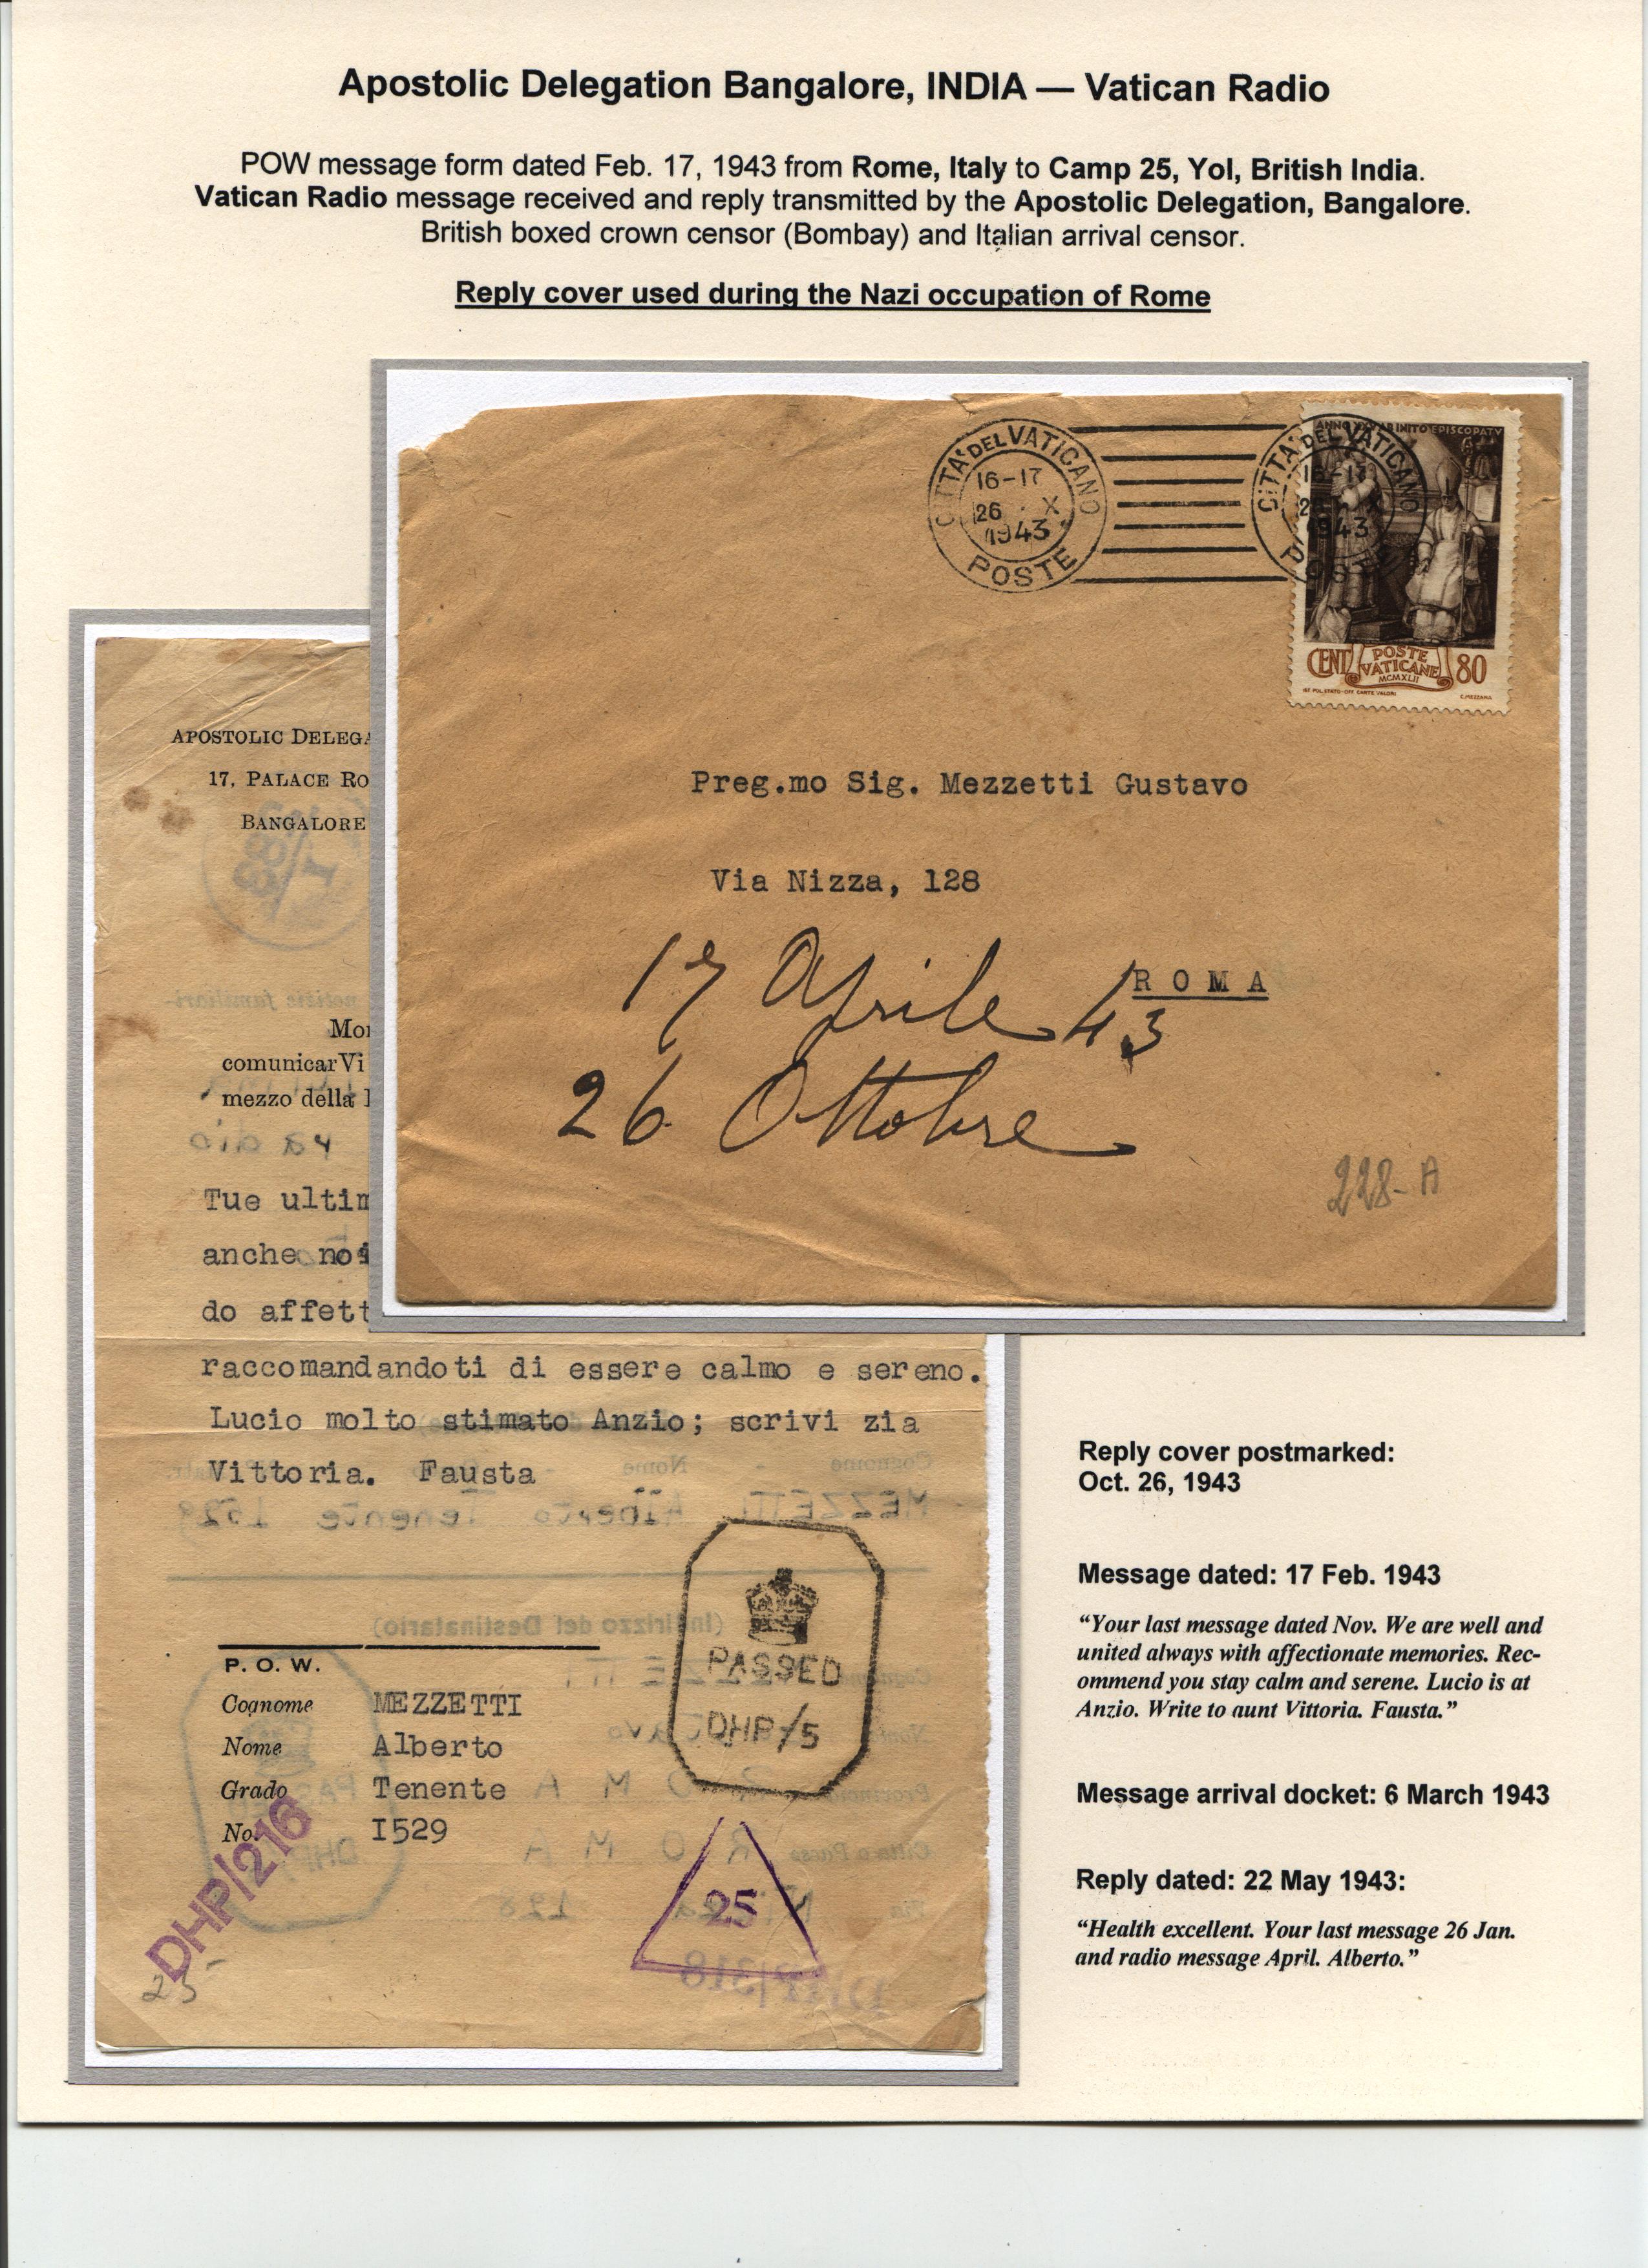 Apostolic Delegation Bangalore, INDIA — Vatican Radio
POW message form dated Feb. 17, 1943 from Rome, Italy to Camp 25, Yol, British India.
Vatican Radio message received and reply transmitted by the Apostolic Delegation, Bangalore.
British boxed crown censor (Bombay) and Italian arrival censor.
Reply cover used during the Nazi occupation of Rome
CITTA' DEL VATICANO
16-17
26 X
1943
POSTE
CITTA' DEL VATICANO
1943
INITO EPISCOPATV
CENT POSTE VATICANE 80
MCMXLII
IST. POL. STATO-OFF. CARTE VALORI
C. MEZZANA
Preg.mo Sig. Mezzetti Gustavo
Via Nizza, 128
ROMA
17 Aprile 43
26 Ottobre
228-A
APOSTOLIC DELEGA
17, PALACE RO
BANGALORE
Mon
comunicarVi
mezzo della
Tue ultim
anche noi
do affett
raccomandandoti di essere calmo e sereno.
Lucio molto stimato Anzio; scrivi zia
Vittoria. Fausta
PASSED
DHP/5
P. O. W.
Cognome MEZZETTI
Nome Alberto
Grado Tenente
No. I529
DHP/216
25
25
Reply cover postmarked:
Oct. 26, 1943
Message dated: 17 Feb. 1943
“Your last message dated Nov. We are well and
united always with affectionate memories. Rec-
ommend you stay calm and serene. Lucio is at
Anzio. Write to aunt Vittoria. Fausta.”
Message arrival docket: 6 March 1943
Reply dated: 22 May 1943:
“Health excellent. Your last message 26 Jan.
and radio message April. Alberto.”